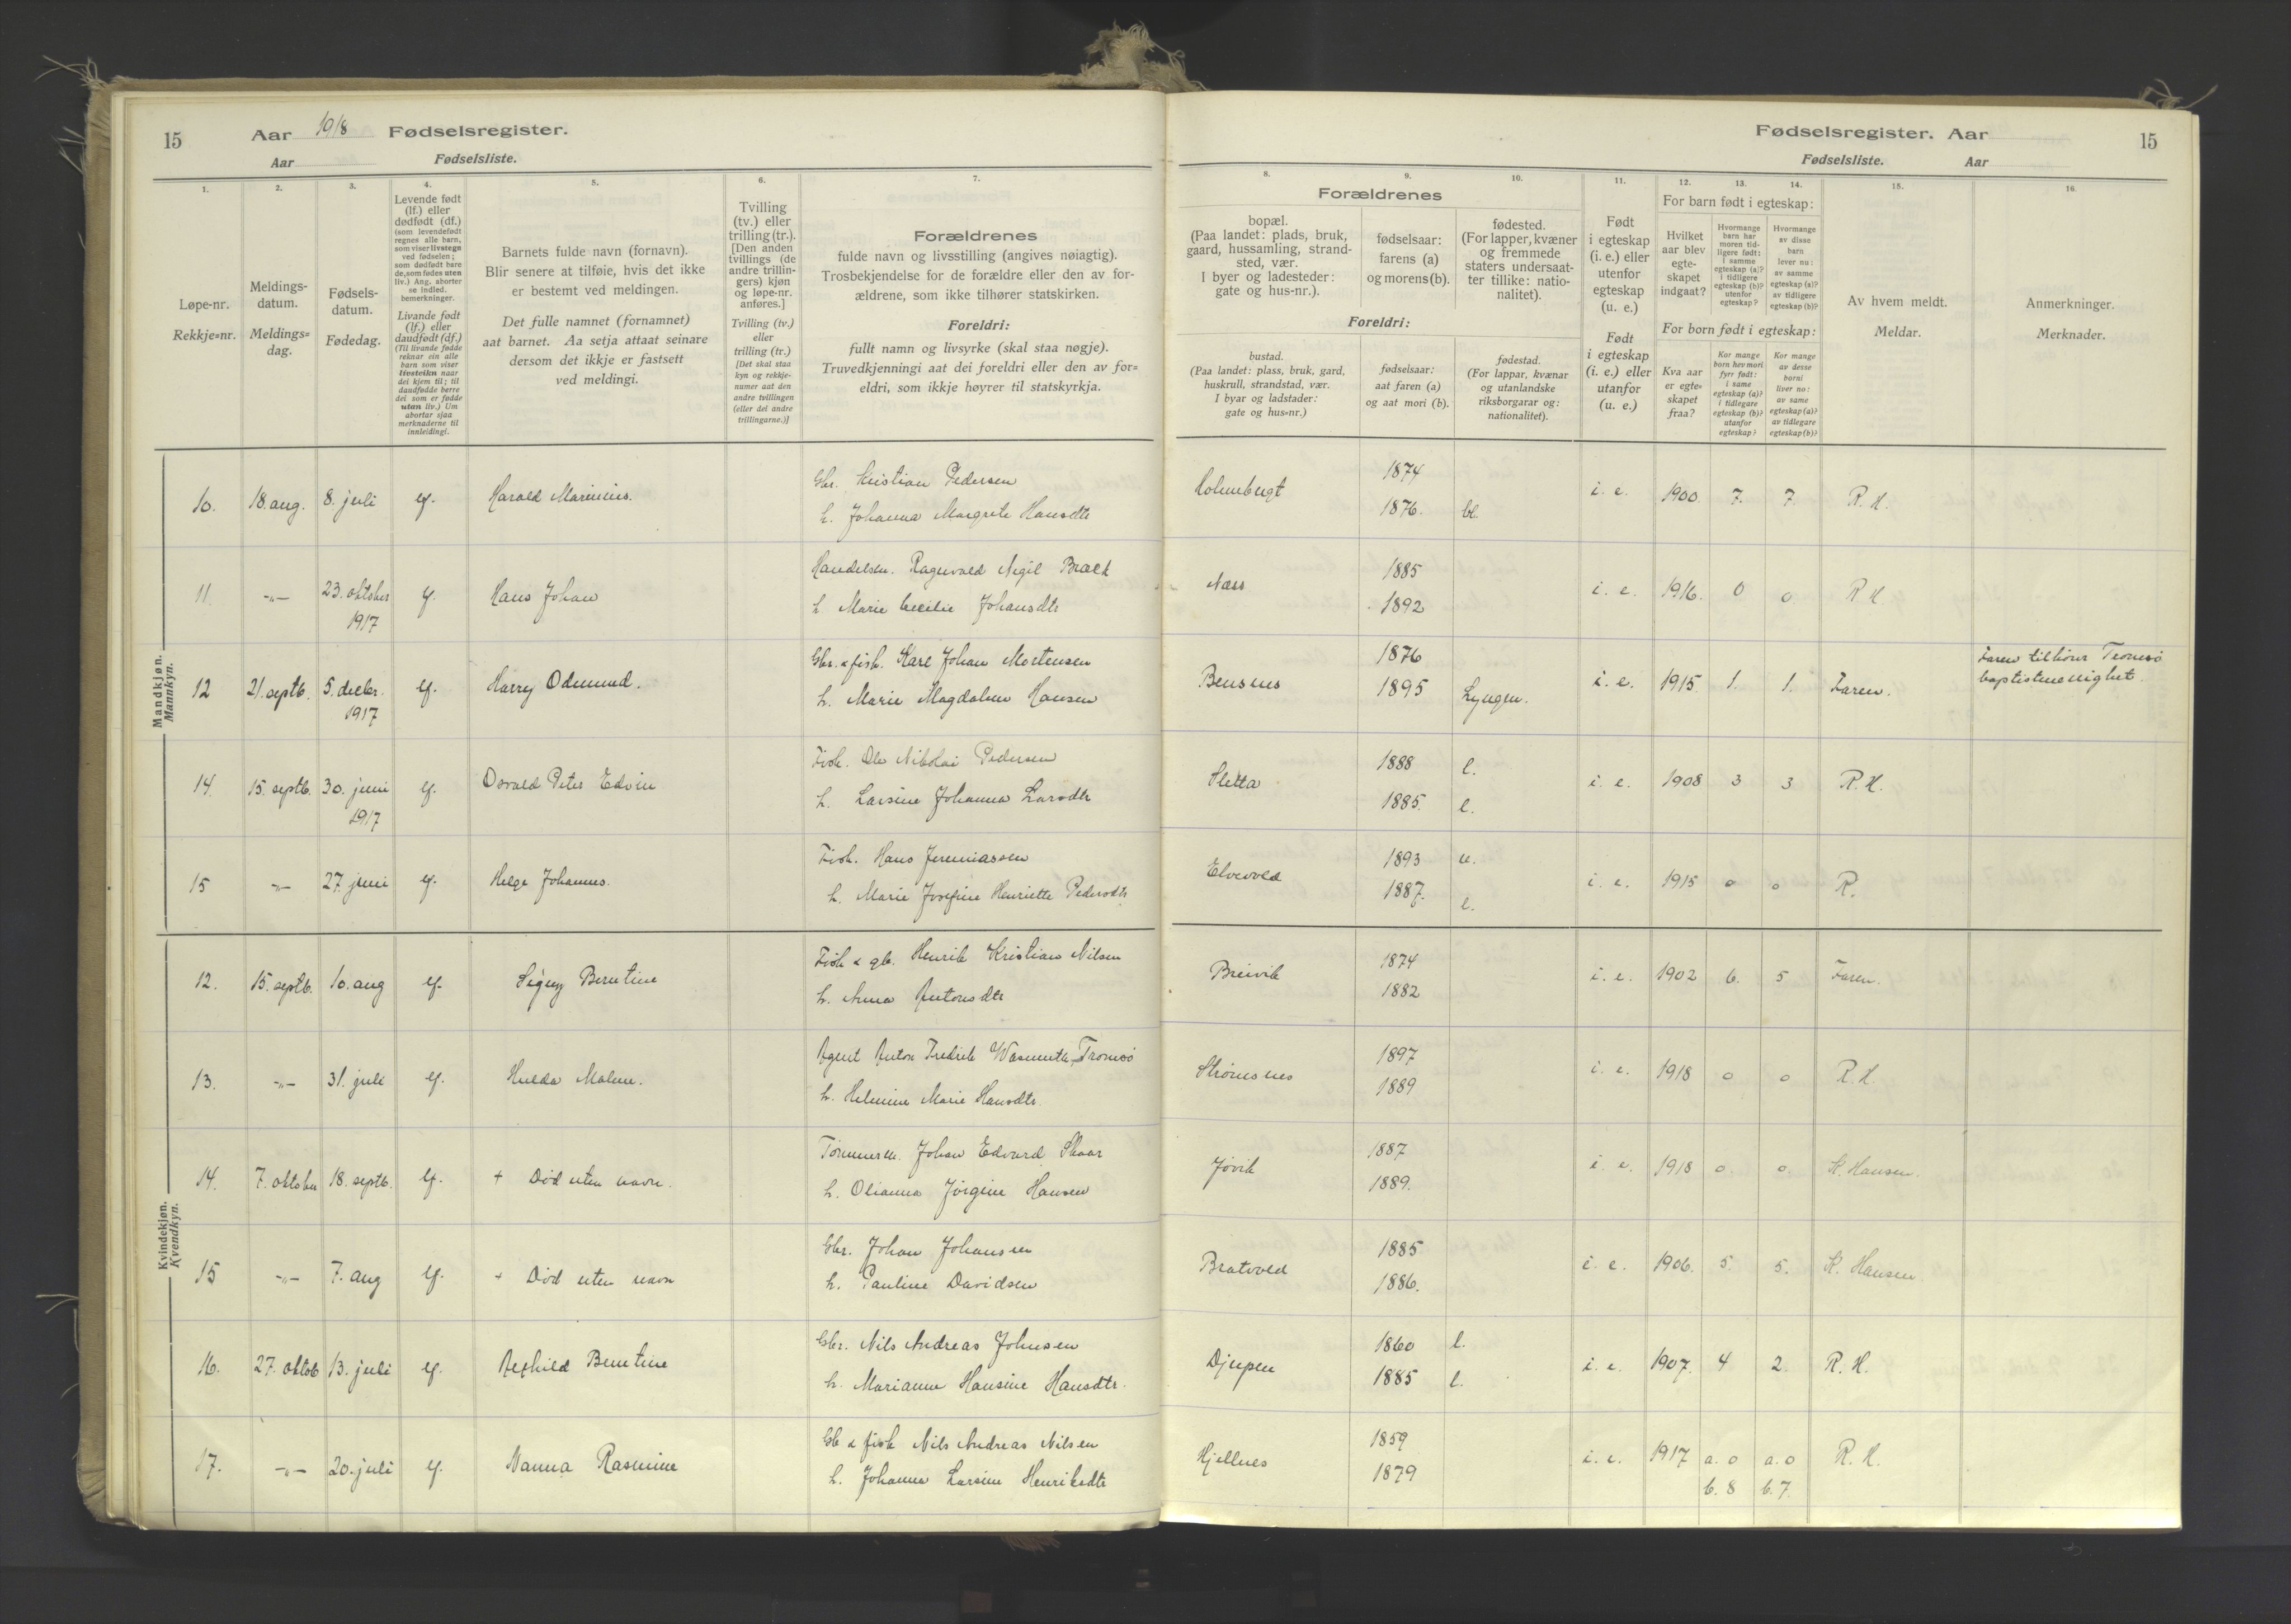 15 Aar 1918 Fødselsregister.
Aar Fødselsliste.
Fødselsregister. Aar 15
Fødselsliste. Aar
1. 2. 3. 4. 5. 6. 7. 8. 9. 10. 11. 12. 13. 14. 15. 16.
Løpe-nr.
Rekkje=nr.
Meldings-
datum.
Meldings=
dag.
Fødsels-
datum.
Fødedag.
Levende født
(lf.) eller
dødfødt (df.)
(som levendefødt
regnes alle barn,
som viser livstegn
ved fødselen;
som dødfødt bare
de, som fødes uten
liv.) Ang. aborter
se indled.
bemerkninger.
Livande født
(lf.) eller
daudfødt (df.)
(Til livande fødde
reknar ein alle
barn som viser
livsteikn naar
dei kjem til; til
daudfødde berre
dei som er fødde
utan liv.) Um
abortar sjaa
merknaderne til
innleidingi.
Barnets fulde navn (fornavn).
Blir senere at tilføie, hvis det ikke
er bestemt ved meldingen.
Det fulle namnet (fornamnet)
aat barnet. Aa setja attaat seinare
dersom det ikkje er fastsett
ved meldingi.
Tvilling
(tv.) eller
trilling (tr.).
[Den anden
tvillings (de
andre trillin-
gers) kjøn
og løpe-nr.
anføres.]
Tvilling (tv.)
eller
trilling (tr.)
[Det skal staa
kyn og rekkje-
numer aat den
andre tvillingen
(eller dei andre
trillingarne.)]
Forældrenes
fulde navn og livsstilling (angives nøiagtig).
Trosbekjendelse for de forældre eller den av for-
ældrene, som ikke tilhører statskirken.
Foreldri:
fullt namn og livsyrke (skal staa nøgje).
Truvedkjenningi aat dei foreldri eller den av for=
eldri, som ikkje høyrer til statskyrkja.
Forældrenes
bopæl.
(Paa landet: plads, bruk,
gaard, hussamling, strand-
sted, vær.
I byer og ladesteder:
gate og hus-nr.).
fødselsaar:
farens (a)
og morens (b).
fødested.
(For lapper, kvæner
og fremmede
staters undersaat-
ter tillike: natio-
nalitet).
Foreldri:
bustad.
(Paa landet: plass, bruk, gard,
huskrull, strandstad, vær.
I byar og ladstader:
gate og hus=nr.)
fødselsaar:
aat faren (a)
og aat mori (b).
fødestad.
(For lappar, kvænar
og utanlandske
riksborgarar og:
nationalitet).
Født
i egteskap
(i. e.) eller
utenfor
egteskap
(u. e.)
Født
i egteskap
(i. e.) eller
utanfor
(u. e.)
For barn født i egteskap:
Hvilket
aar blev
egte-
skapet
indgaat?
Hvormange
barn har
moren tid-
ligere født:
i samme
egteskap (a)?
i tidligere
egteskap (b)?
utenfor
egteskap?
Hvormange
av disse
barn
lever nu:
av samme
egteskap (a)?
av tidligere
egteskap (b)?
For born født i egteskap:
Kva aar
er egte-
skapet
fraa?
Kor mange
born hev mori
fyrr født:
i same
egteskap (a)?
i tidlegare
egteskap (b)?
utanfor
egteskap?
Kor mange
av desse
borni
liver no:
av same
egteskap (a)?
av tidlegare
egteskap (b)?
Av hvem meldt.
Meldar.
Anmerkninger.
Merknader.
Mandkjøn.
Mannkyn.
Gbr. Kristian Pedersen 1874
10. 18. aug. 8. juli lf. Harald Marinius. Holmbugt i. e. 1900 7. 7. R. H.
h. Johanna Margrete Hansdtr 1876. bl.
Handelsm. Ragnvald Negil Bræck 1885
11. -"- 23. oktober lf. Hans Johan Næss i. e. 1916. 0 0. R H.
1917 h. Marie Cecilie Johansdtr 1892
Gbr. & fisk. Karl Johan Mortensen 1876 Faren tilhører Tromsø
12 21. septb. 5. decbr. lf. Harry Odmund. Bensnes i. e. 1915. 1. 1. Faren. baptistmenighet.
1917 h. Marie Magdalene Hansen 1895 Lyngen.
Fisk. Ole Nikolai Pedersen 1888 l.
14. 15. septb. 30. juni lf. Osvald Peter Edvin Sletta i. e. 1908 3 3 R. H.
1917 h. Larsine Johanna Larsdtr 1885. l.
Fisk. Hans Jeremiassen 1893 u.
15 -"- 27. juni lf. Helge Johannes. Elvevold i. e. 1915 0 0 R.
h. Marie Josefine Henriette Pedersdtr 1887. l.
Kvindekjøn.
Kvendkyn.
Fisk & gb. Henrik Kristian Nilsen 1874
12. 15. septb. 10. aug lf. Signy Berntine Breivik i. e. 1902 6. 5 Faren.
h. Anna Antonsdtr 1882
Agent Anton Fredrik Wasmuth, Tromsö 1897
13. -"- 31. juli lf. Hulda Malene. Strömsnes i. e. 1918 0 0 R. H.
h. Helmine Marie Hansdtr. 1889
Tömmerm. Johan Edvard Skaar 1887
14. 7. oktober 18. septb. lf. + Död uten navn. Jövik i. e. 1918 0. 0. K. Hansen.
h. Olianna Jörgine Hansen 1889.
Gbr. Johan Johansen 1885
15 -"- 7. aug lf. + Död uten navn Bratvold i. e. 1906. 5. 5. K. Hansen
h. Pauline Davidsen 1886.
Gbr. Nils Andreas Johnsen 1860 l.
16. 27. oktob 13. juli lf. Berntine Djupen i. e. 1907. 4 2. R. H.
h. Marianne Hansine Hansdtr. 1885 l.
Gb & fisk Nils Andreas Nilsen 1859
17. -"- 20. juli lf. Nanna Rasmine Hjellnes i. e. 1917 a. 0 a. 0 R. H.
h. Johanna Larsine Henriksdtr 1879 b. 8 b. 7.